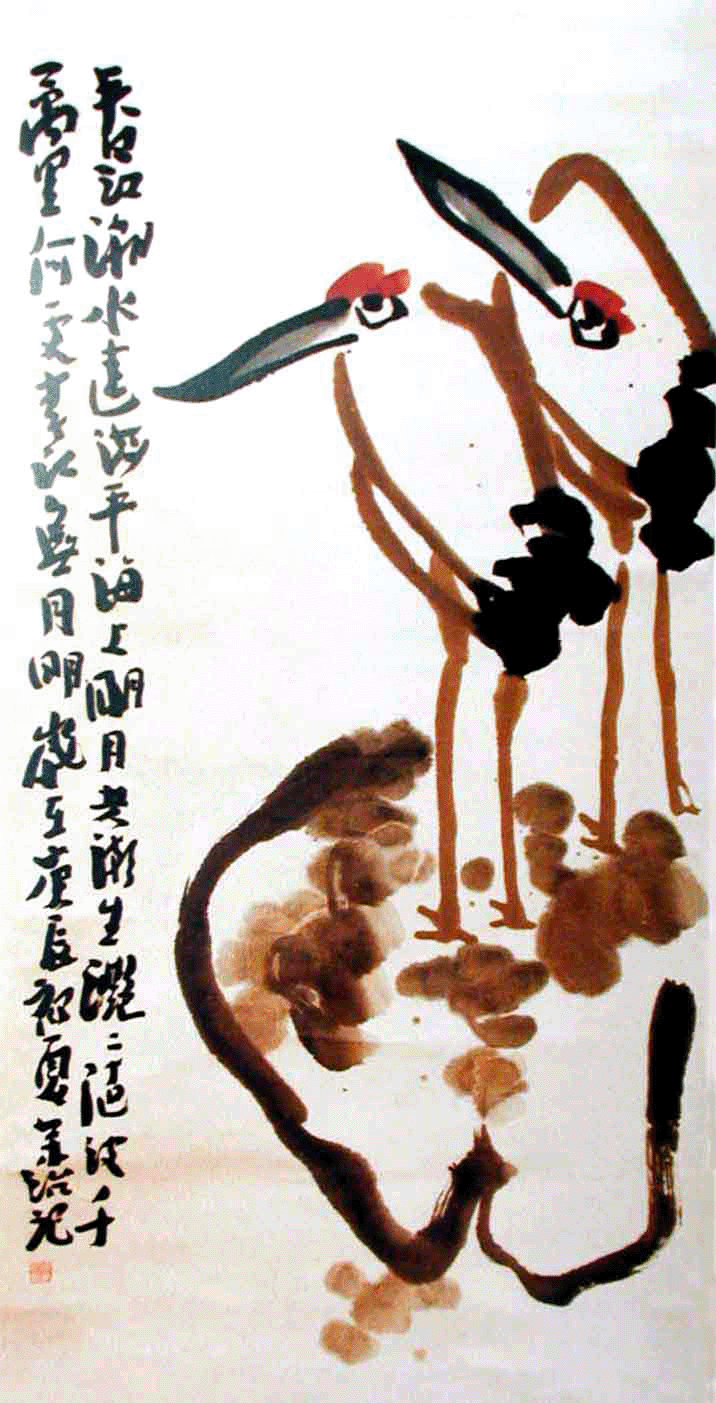 春江潮水連海平海上明月共潮生灧々隨波千
萬里何處春江無月明歲在庚辰初夏記